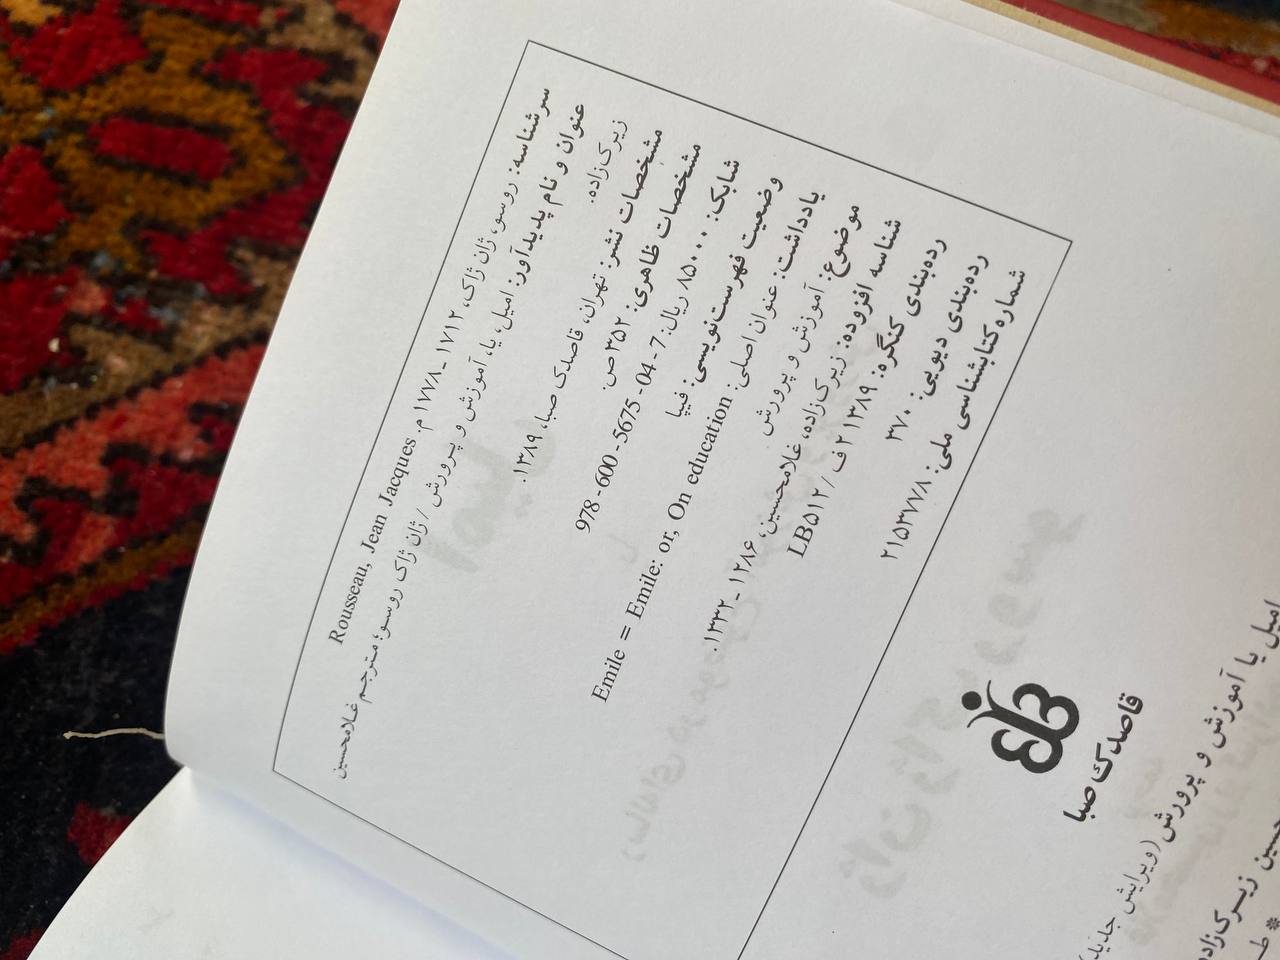 سرشناسه: روسو، ژان ژاک، ۱۷۱۲ ـ ۱۷۷۸ م. Rousseau, Jean Jacques
عنوان و نام پدیدآور: امیل، یا، آموزش و پرورش / ژان ژاک روسو؛ مترجم غلامحسین
زیرک‌زاده.
مشخصات نشر: تهران، قاصدک صبا، ۱۳۸۹.
مشخصات ظاهری: ۳۵۲ ص.
شابک: ۸۵۰۰۰ ریال: 7 - 04 - 5675 - 600 - 978
وضعیت فهرست‌نویسی: فیپا
یادداشت: عنوان اصلی: Emile = Emile: or, On education
موضوع: آموزش و پرورش
شناسه افزوده: زیرک‌زاده، غلامحسین، ۱۲۸۶ ـ ۱۳۳۲.
رده‌بندی کنگره: ۱۳۸۹ ۲ ف / LB۵۱۲
رده‌بندی دیویی: ۳۷۰
شماره کتابشناسی ملی: ۲۱۵۳۷۷۸
قاصدک صبا
امیل یا آموزش و پرورش (ویرایش جدید)
حسین زیرک‌زاده